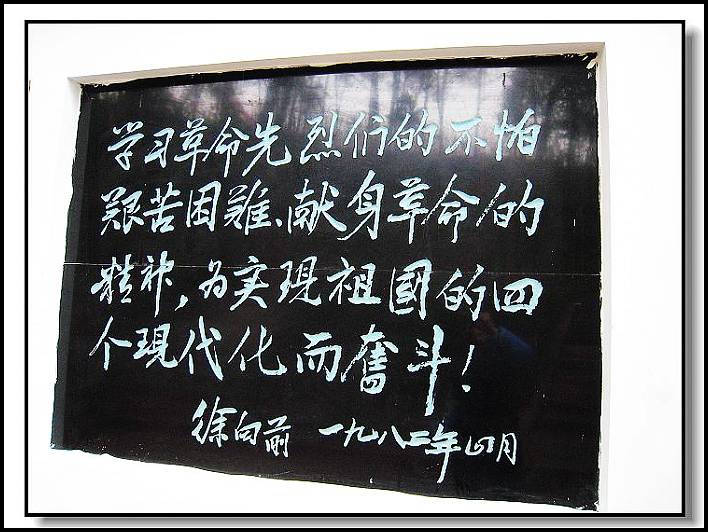 学习革命先烈们的不怕
艰苦困難、献身革命的
精神，为实現祖國的四
个現代化而奮斗！
徐向前 一九八二年四月